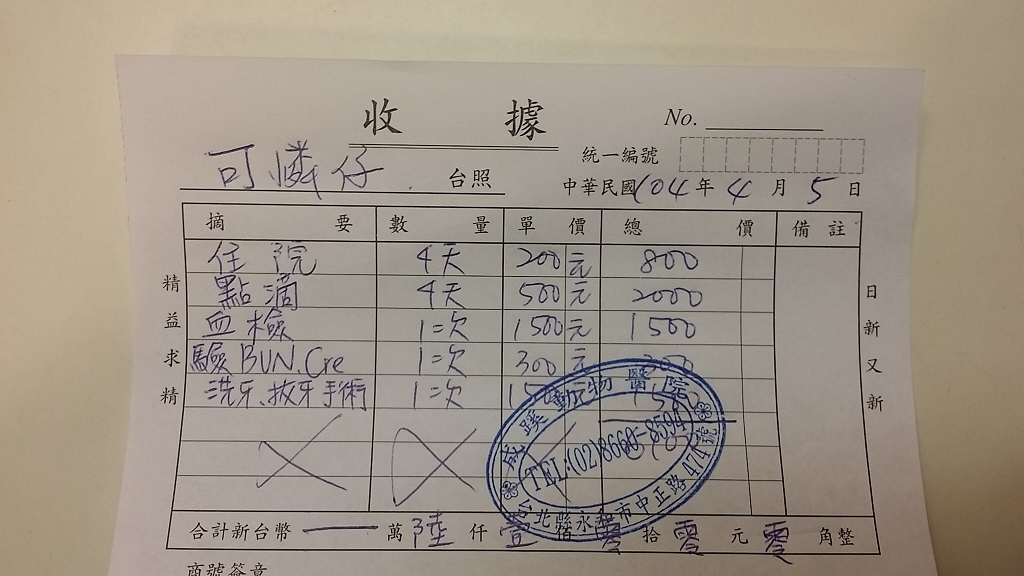 收據
No.
統一編號
可憐仔 台照
中華民國104年4月5日
摘要 數量 單價 總價 備註
住院 4天 200元 800
點滴 4天 500元 2000
血檢 1次 1500元 1500
驗BUN.Cre 1次 300元 300
洗牙、拔牙手術 1次
精益求精
日新又新
成蹊動物醫院
TEL:(02)8660-8594
合計新台幣 萬陸仟壹佰零拾零元零角整
商號簽章